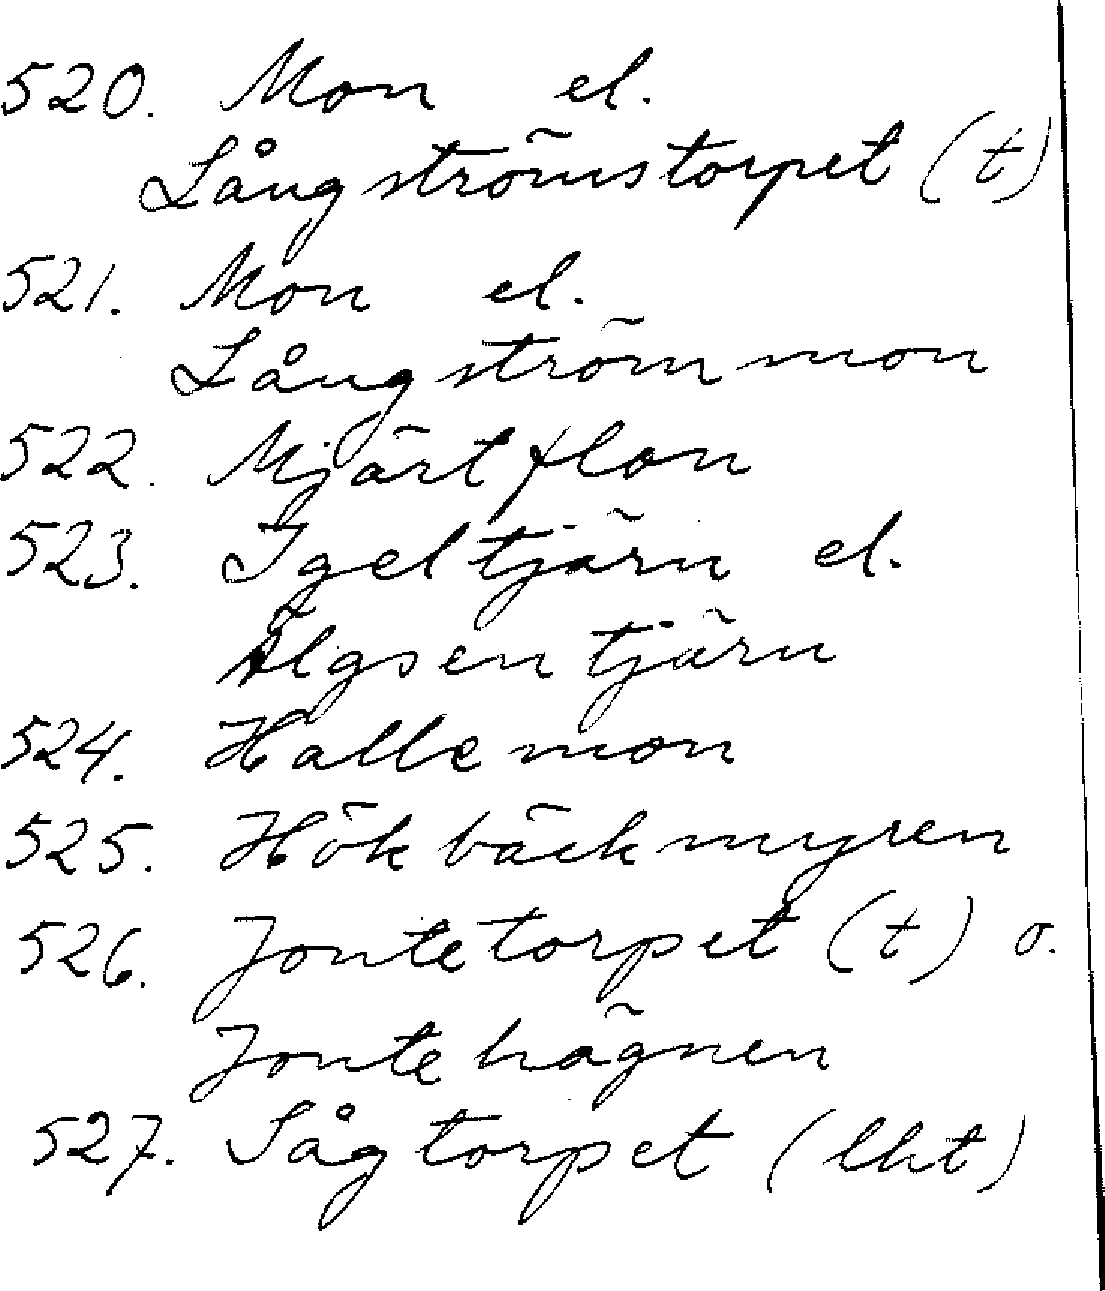 520. Mon el.
Långströmstorpet (t)
521. Mon el.
Långströmmon
522. Mjärtflon
523. Igeltjärn el.
Älgsentjärn
524. Hallemon
525. Hökbäckmyren
526. Jontetorpet (t) o.
Jontehägnen
527. Sågtorpet (lht)